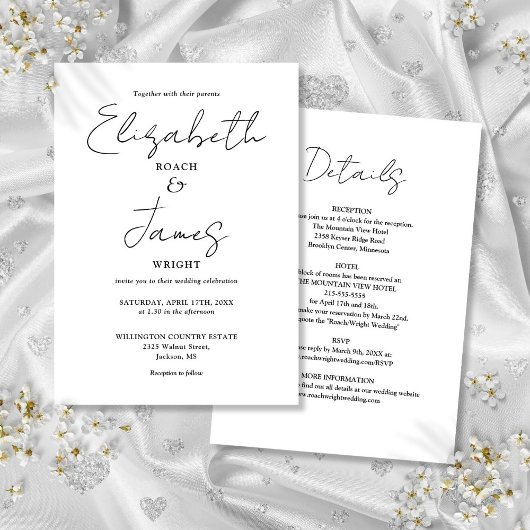 Together with their parents
Elizabeth
ROACH
&
James
WRIGHT
invite you to their wedding celebration
SATURDAY, APRIL 17TH, 20XX
at 1.30 in the afternoon
WILLINGTON COUNTRY ESTATE
2325 Walnut Street,
Jackson, MS
Reception to follow
Details
RECEPTION
join us at 4 o'clock for the reception.
The Mountain View Hotel
2358 Keyser Ridge Road
Brooklyn Center, Minnesota
HOTEL
block of rooms has been reserved at
THE MOUNTAIN VIEW HOTEL
215-555-5555
for April 17th and 18th.
make your reservation by March 22nd.
quote the "Roach/Wright Wedding"
RSVP
reply by March 9th, 20XX at:
roachwrightwedding.com/RSVP
MORE INFORMATION
to find out all details at our wedding website
www.roachwrightwedding.com